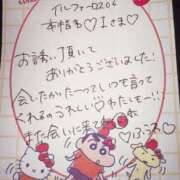 イルファーロ206
本指名♡Iさま♡
お誘い頂いて
ありがとうございました!
会いたかた〜ッていつも言って
くれるのうれしい♡わたしもー!!
また会いに来てね♡